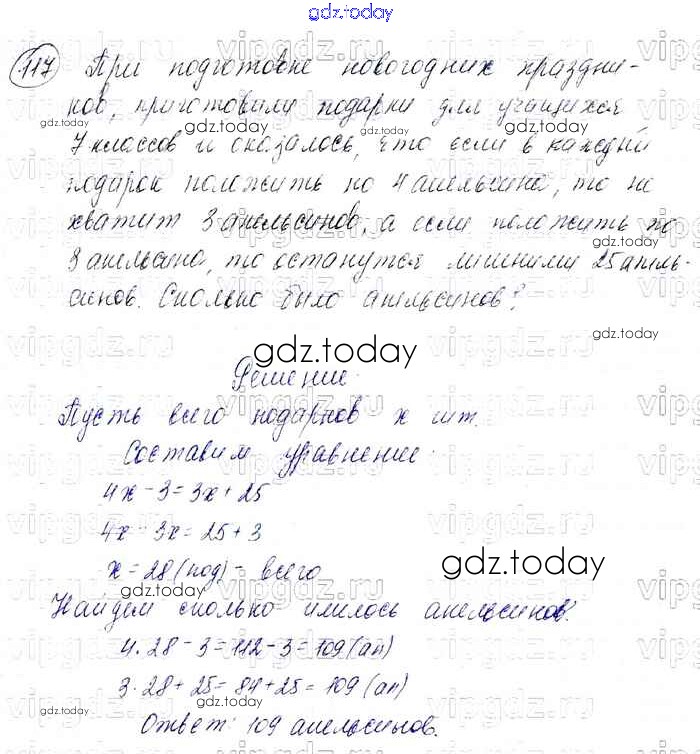 gdz.today
117 При подготовке новогодних праздни-
ков, приготовили подарки для учащихся
gdz.today gdz.today
7 классов и оказалось, что если в каждый
подарок положить по 4 апельсина, то не
хватит 3 апельсинов, а если положить по
gdz.today
3 апельсина, то останутся лишними 25 апель-
синов. Сколько было апельсинов?
gdz.today
gdz.today
Решение.
Пусть всего подарков x шт.
Составим уравнение.
4x - 3 = 3x + 25
4x - 3x = 25 + 3
gdz.today
x = 28 (под) - всего
gdz.today
Найдем сколько имелось апельсинов:
4 · 28 - 3 = 112 - 3 = 109 (ап)
3 · 28 + 25 = 84 + 25 = 109 (ап)
gdz.today
gdz.today
Ответ: 109 апельсинов.